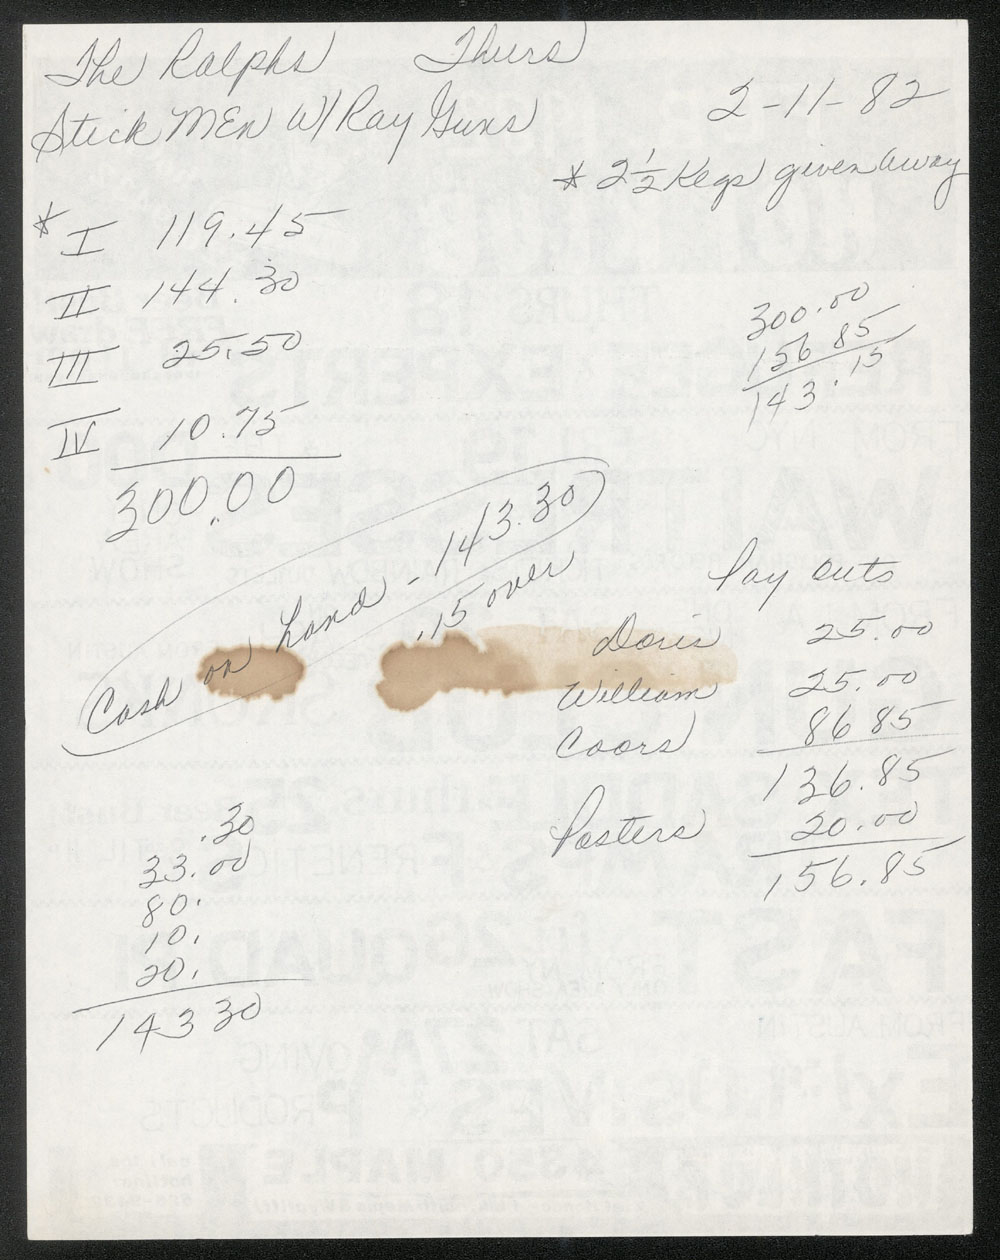 The Ralphs Thurs
Stick MEn W/ Ray Guns 2-11-82
* 2 1/2 Kegs given away
* I 119.45
II 144.30
III 25.50
IV 10.75
300.00
300.00
156 85
143.15
Cash on hand - 143.30
.15 over
Pay outs
Doris 25.00
William 25.00
Coors 86 85
136.85
Posters 20.00
156.85
.30
33.00
80.
10.
20.
143 30